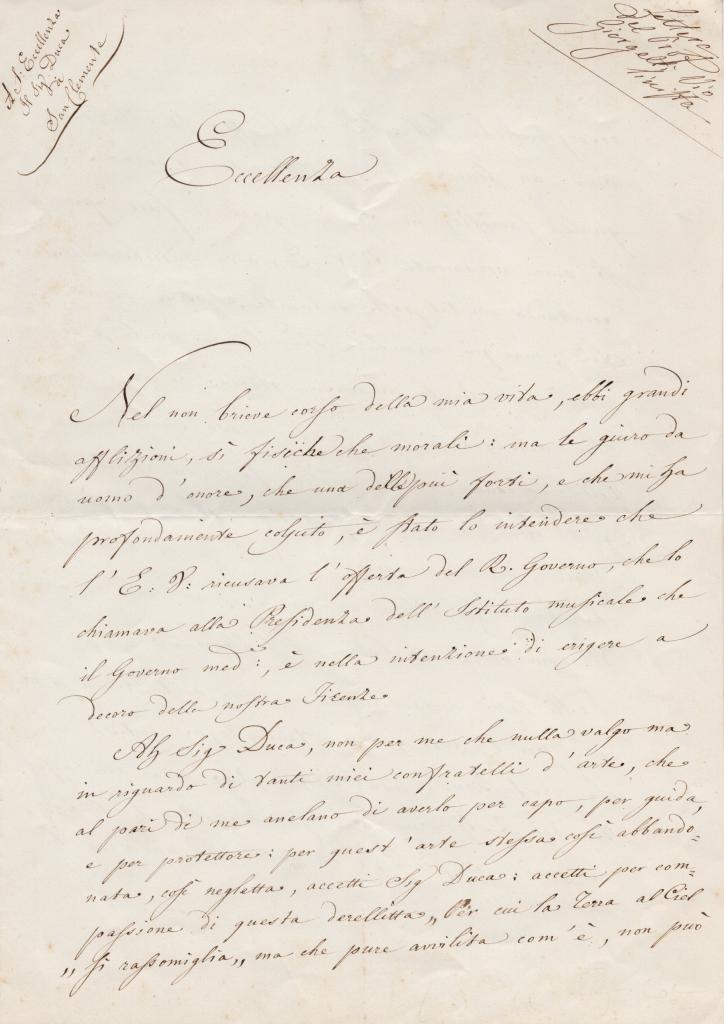 A S. Eccellenza
Il Sig. Duca
di
San Clemente
Lettera
del Prof.
Giorgetti
Eccellenza
Nel non brieve corso della mia vita, ebbi grandi
afflizioni, sì fisiche che morali: ma le giuro da
uomo d'onore, che una delle più forti, e che mi ha
profondamente colpito, è stato lo intendere che
l'E: V: ricusava l'offerta del R. Governo, che lo
chiamava alla Presidenza dell'Istituto musicale che
il Governo med:°, è nella intenzione di erigere a
decoro della nostra Firenze
Ah Sig Duca, non per me che nulla valgo ma
in riguardo di tanti miei confratelli d'arte, che
al pari di me anelano di averlo per capo, per guida,
e per protettore: per quest'arte stessa così abbando=
nata, così negletta, accetti Sig Duca: accetti per com=
passione di questa derelitta „ Per cui la Terra al Ciel
„ si rassomiglia „ ma che pure avvilita com'è, non può